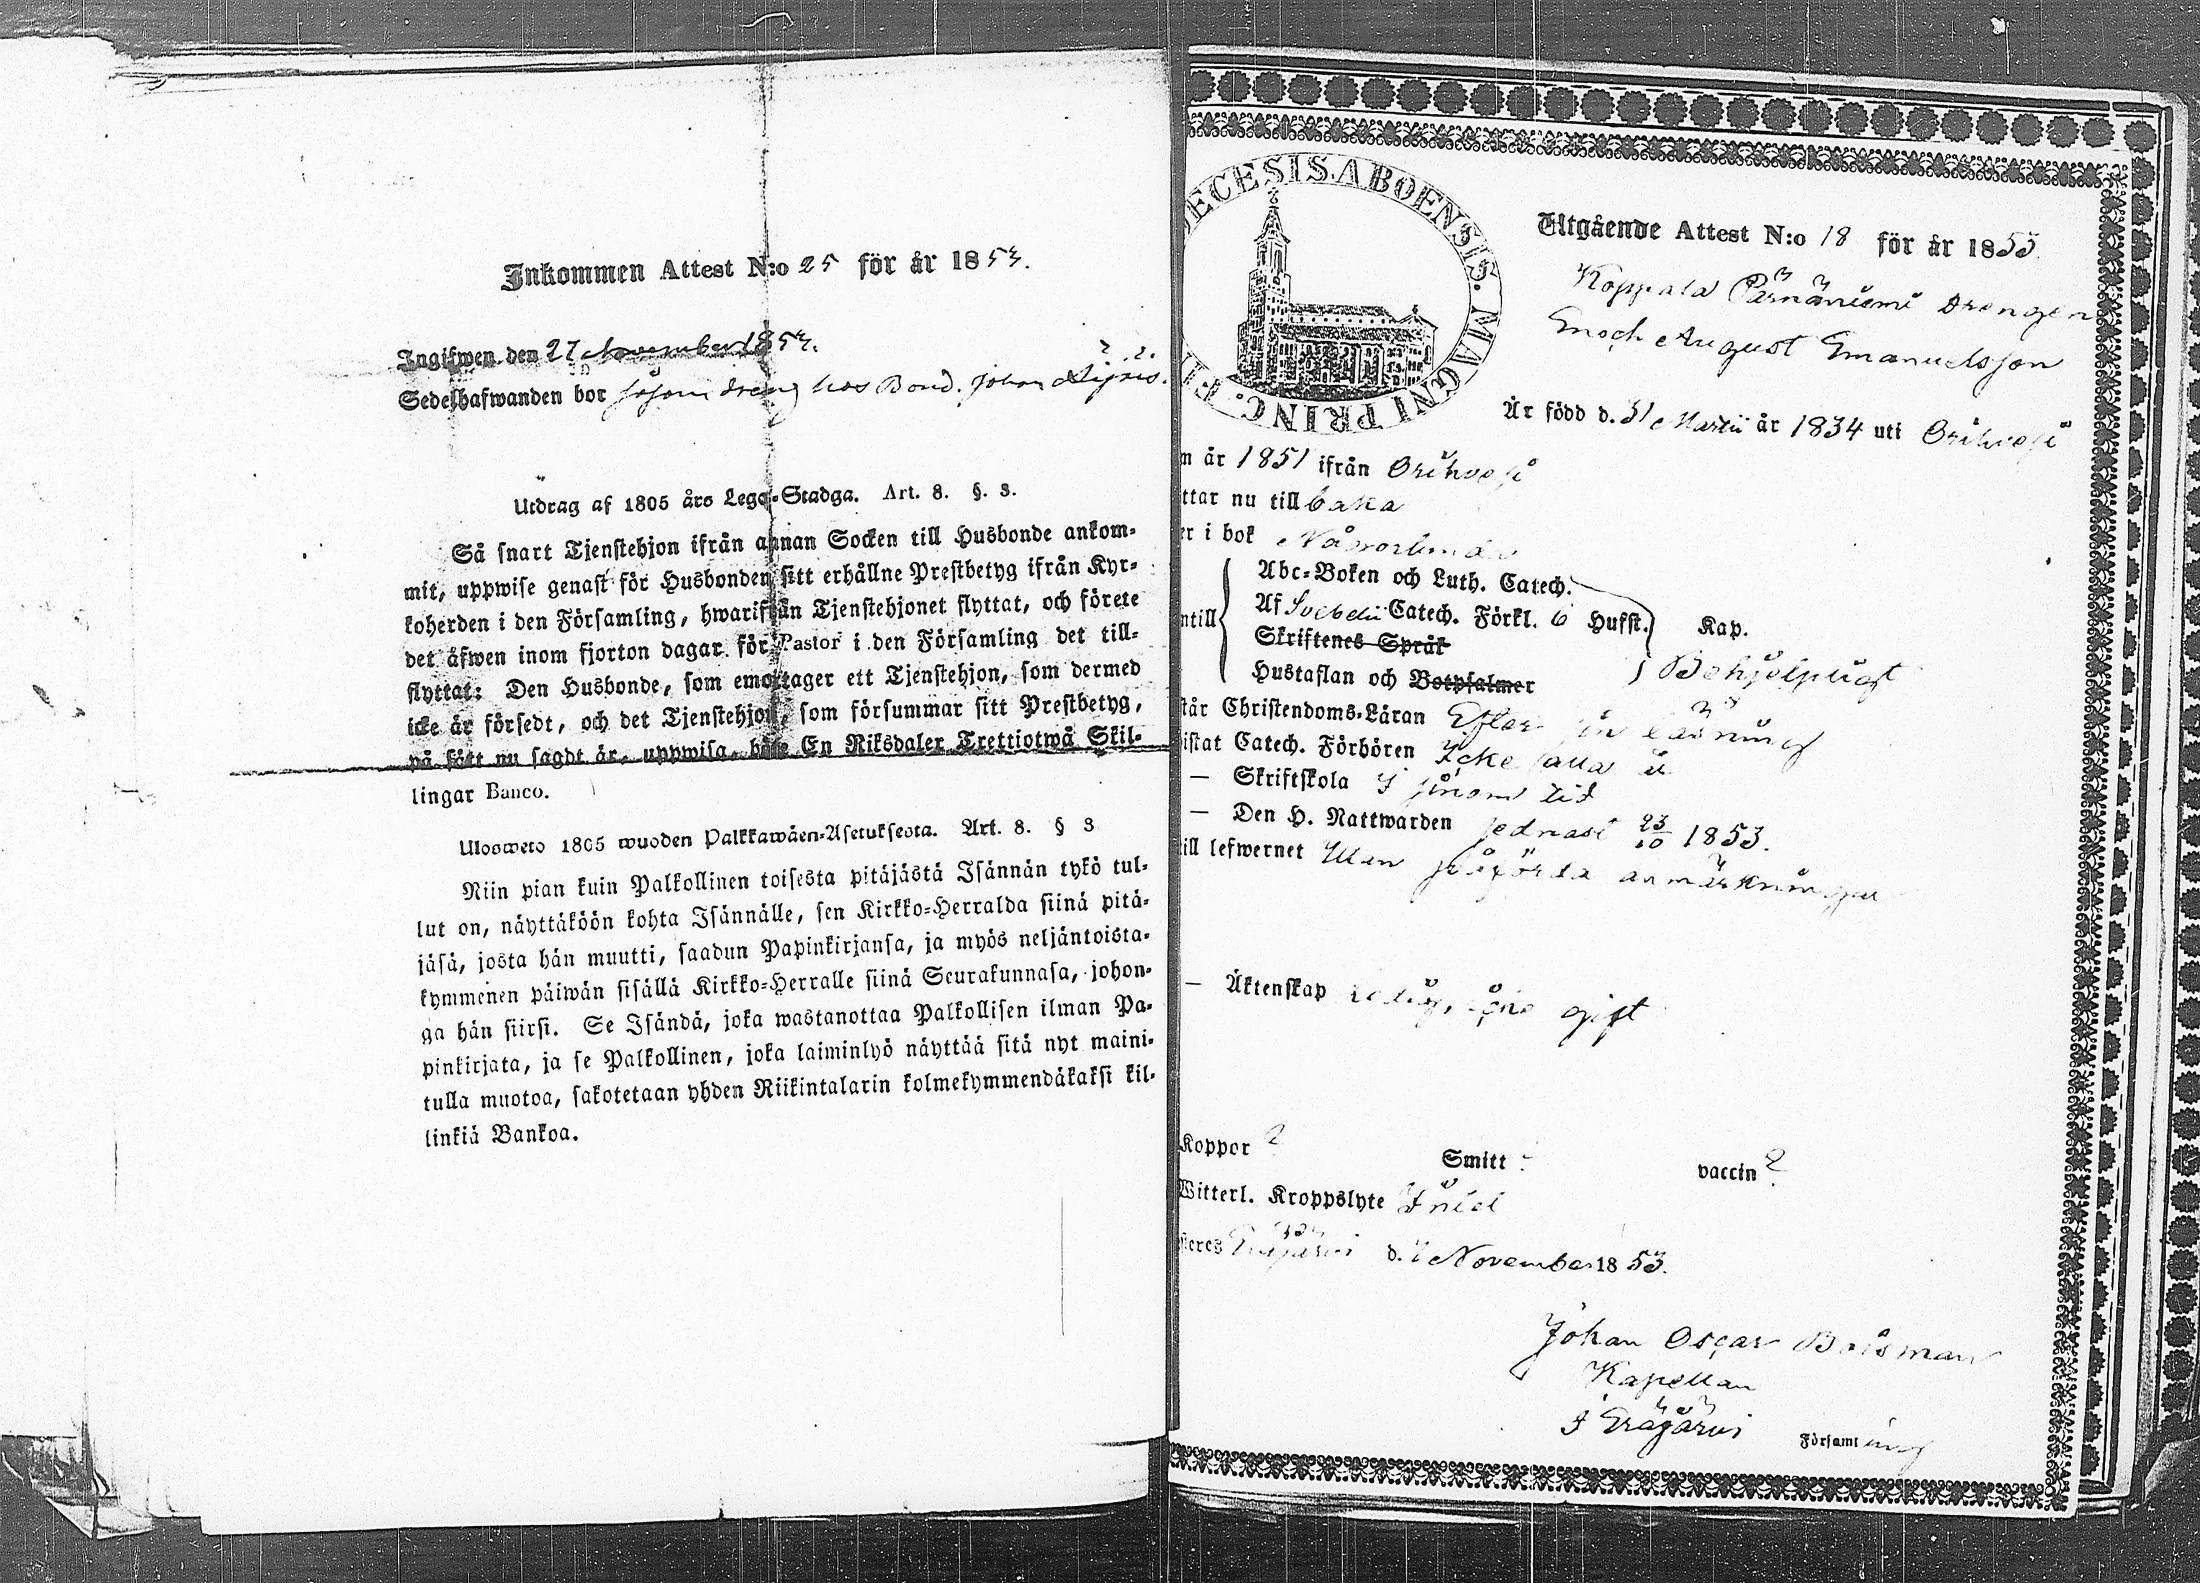 Inkommen Attest N:o 25 för år 1853.
Ingifwen den 27 November 1853.
Sedelhafwanden bor såsom dreng hos Bond. Johan
Utdrag af 1805 års Lego-Stadga. Art. 8. §. 3.
Så snart Tjenstehjon ifrån annan Socken till Husbonde ankom-
mit, uppwise genast för Husbonden sitt erhållne Prestbetyg ifrån Kyr-
koherden i den Församling, hwarifrån Tjenstehjonet flyttat, och förete
det äfwen inom fjorton dagar för Pastor i den Församling det till-
flyttat: Den Husbonde, som emottager ett Tjenstehjon, som dermed
icke är försedt, och det Tjenstehjon, som försummar sitt Prestbetyg,
på sätt nu sagdt är, uppwisa, böte En Riksdaler Trettiotwå Skil-
lingar Banco.
Ulosweto 1805 wuoden Palkkawäen-Asetuksesta. Art. 8. § 3
Niin pian kuin Palkollinen toisesta pitäjästä Isännän tykö tul-
lut on, näyttäköön kohta Isännälle, sen Kirkko-Herralda siinä pitä-
jäsä, josta hän muutti, saadun Papinkirjansa, ja myös neljäntoista-
kymmenen päiwän sisällä Kirkko-Herralle siinä Seurakunnasa, johon-
ga hän siirsi. Se Isändä, joka wastanottaa Palkollisen ilman Pa-
pinkirjata, ja se Palkollinen, joka laiminlyö näyttää sitä nyt maini-
tulla muotoa, sakotetaan yhden Riikintalarin kolmekymmendäkaksi kil-
linkiä Bankoa.
ECESIS. ABOENSIS. MAGNI PRINC. F
Utgående Attest N:o 18 för år 1853
Koppala Pärnäniemi Drengen
Enoch August Emanuelsson
Är född d. 31 Martii år 1834 uti Orihvesi
m år 1851 ifrån Orihvesi
ttar nu tillbaka
er i bok Någorlunda
Abc-Boken och Luth. Catech.
ntill Af Svebelii Catech. Förkl. 6 Hufst. Kap.
Skriftenes Språk
Hustaflan och Botpsalmer Behjelpligt
står Christendoms-Läran Efter sin läsning
istat Catech. Förhören Icke alla
— Skriftskola I sinom tid
— Den H. Nattwarden sednast 23/10 1853.
ill lefwernet Utan påförda anmärkningar
— Äktenskap Ledig, icke gift
Koppor ? Smitt vaccin ?
Witterl. Kroppslyte Intet
steres Eräjärvi d. 7 November 1853.
Johan Oscar Boisman
Kapellan
i Eräjärvi Församling